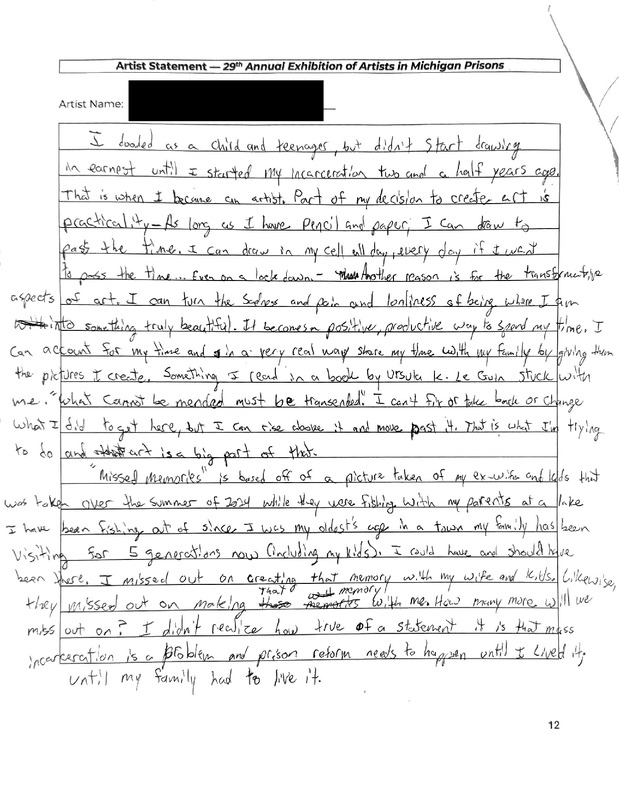 Artist Statement — 29th Annual Exhibition of Artists in Michigan Prisons
Artist Name:
I dooled as a child and teenager, but didn't start drawing
in earnest until I started my incarceration two and a half years ago.
That is when I became an artist. Part of my decision to create art is
practicality— As long as I have pencil and paper, I can draw to
pass the time. I can draw in my cell all day, every day if I want
to pass the time... Even on a lock down. - Another reason is for the transformative
aspects of art. I can turn the sadness and pain and lonliness of being where I am
into something truly beautiful. It becomes a positive, productive way to spend my time. I
can account for my time and in a very real way share my time with my family by giving them
the pictures I create. Something I read in a book by Ursula K. Le Guin stuck with
me. "What cannot be mended must be transended." I can't fix or take back or change
what I did to get here, but I can rise above it and move past it. That is what I'm trying
to do and art is a big part of that.
"Missed Memories" is based off of a picture taken of my ex-wife and kids that
was taken over the summer of 2024 while they were fishing with my parents at a lake
I have been fishing out of since I was my oldest's age in a town my family has been
visiting for 5 generations now (including my kids). I could have and should have
been there. I missed out on creating that memory with my wife and kids. Likewise,
they missed out on making that memory with me. How many more will we
miss out on? I didn't realize how true of a statement it is that mass
incarceration is a problem and prison reform needs to happen until I lived it;
until my family had to live it.
12